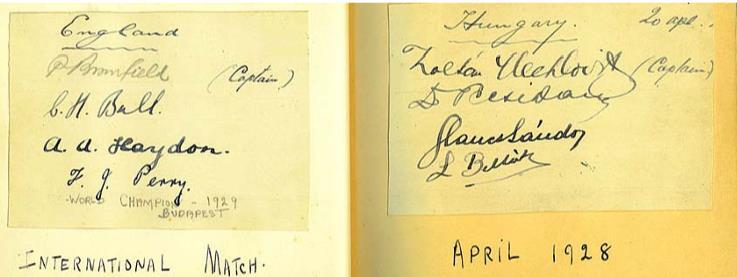 England
P Bromfield (Captain)
C. H. Bull.
A. A. Haydon.
F. J. Perry.
-WORLD CHAMPION - 1929
BUDAPEST
INTERNATIONAL MATCH.
Hungary. 20
Zoltán Mechlovits (Captain)
D Pecsi
Glancz Sándor
L Bellák
APRIL 1928